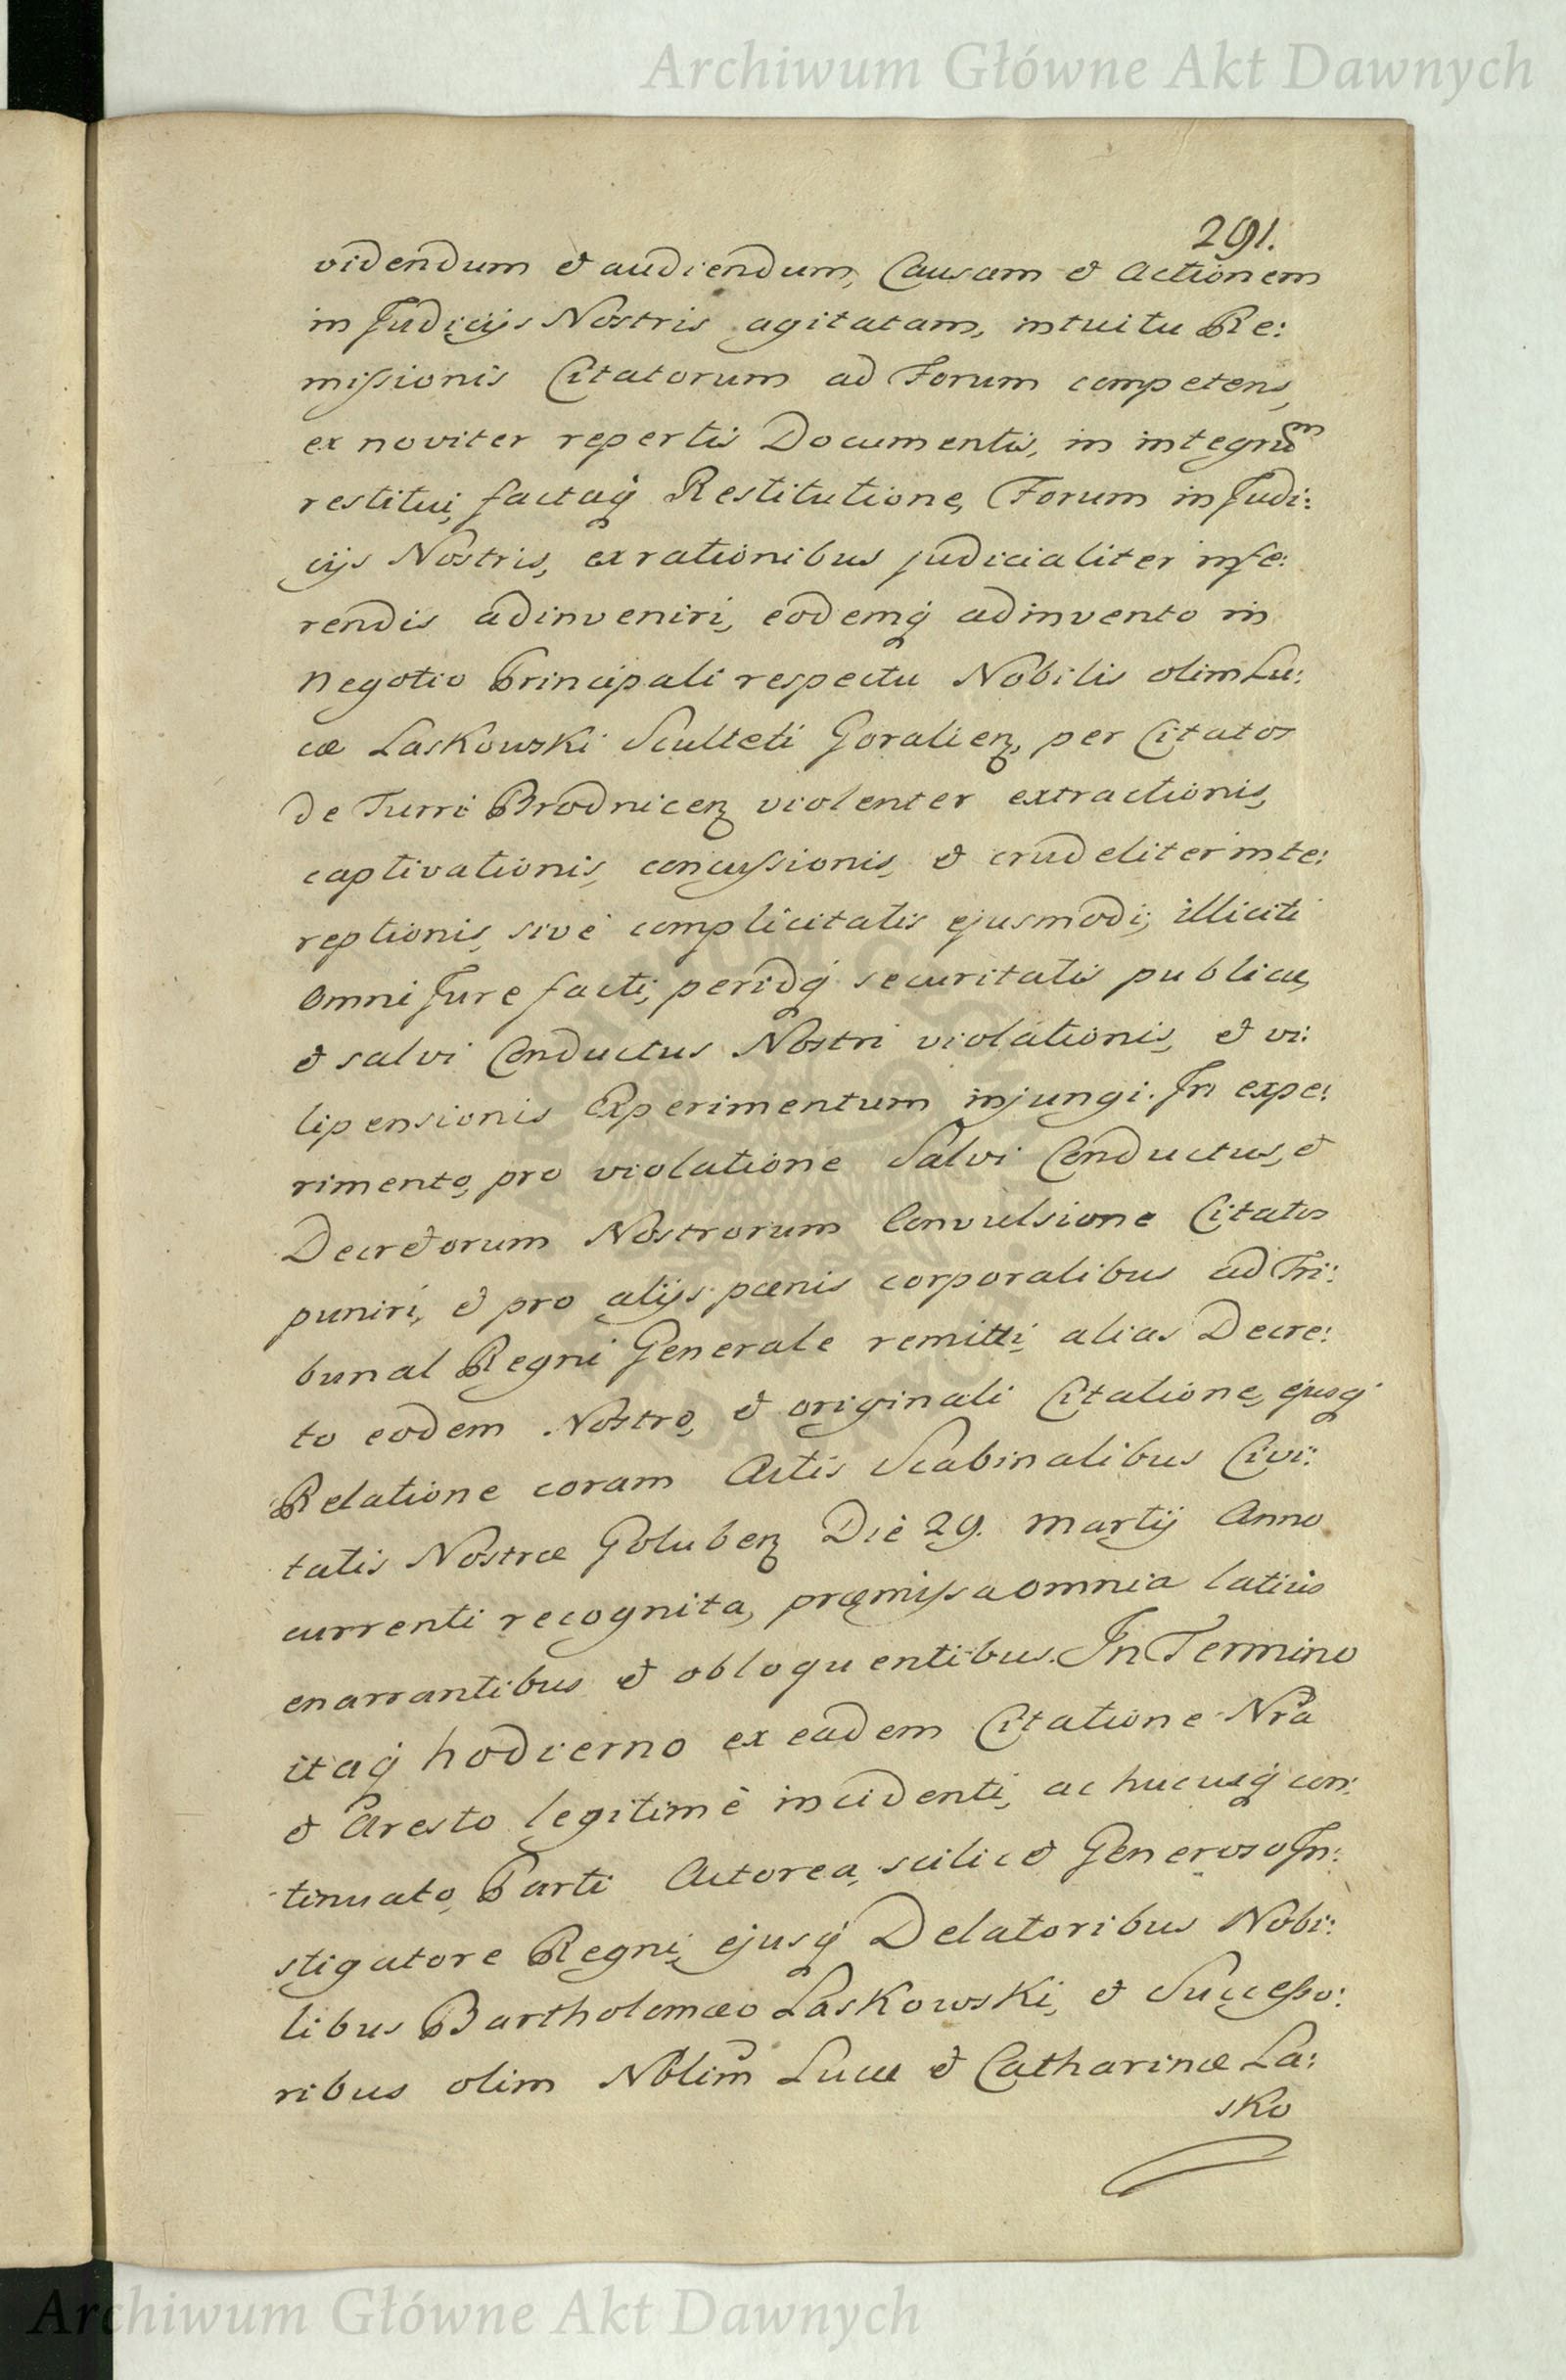 Archiwum Główne Akt Dawnych
291.
videndum et audiendum, Causam et Actionem
in Judicijs Nostris agitatam, intuitu Re:
missionis Citatorum ad Forum competens,
ex noviter repertis Documentis, in integrum
restitui, factaq́ Restitutione, Forum in Judi:
cijs Nostris, ex rationibus judicialiter infe:
rendis adinveniri, eodemq́ adinvento in
negotio Principali respectu Nobilis olim Lu:
cæ Laskowski Sculteti Goralieñ, per Citatos
de Turri Brodniceñ violenter extractionis,
captivationis, concussionis, et crudeliter inte:
reptionis, sive complicitatis ejusmodi, illiciti
omni Jure facti, peridq́ securitatis publicæ,
et salvi Conductus Nostri violationis, et vi:
lipensionis Experimentum injungi. In expe:
rimento, pro violatione Salvi Conductus, et
Decretorum Nostrorum Convulsione Citatos
puniri, et pro alijs pœnis corporalibus ad Tri:
bunal Regni Generale remitti, alias Decre:
to eodem Nostro, et originali Citatione, ejusq́
Relatione coram Actis Scabinalibus Civi:
tatis Nostræ Golubeñ Die 29. Martij Anno
currenti recognita, præmissa omnia latius
enarrantibus et obloquentibus. In Termino
itaq́ hodierno ex eadem Citatione Nrã
et Aresto legitimè incidenti, ac hucusq́ con:
tinuato, Parti Actorea, scilicet Generoso In:
stigatore Regni, ejusq́ Delatoribus Nobi:
libus Bartholomæo Laskowski, et Successo:
ribus olim Nblim̃ Lucæ et Catharinæ La:
sko
Archiwum Główne Akt Dawnych